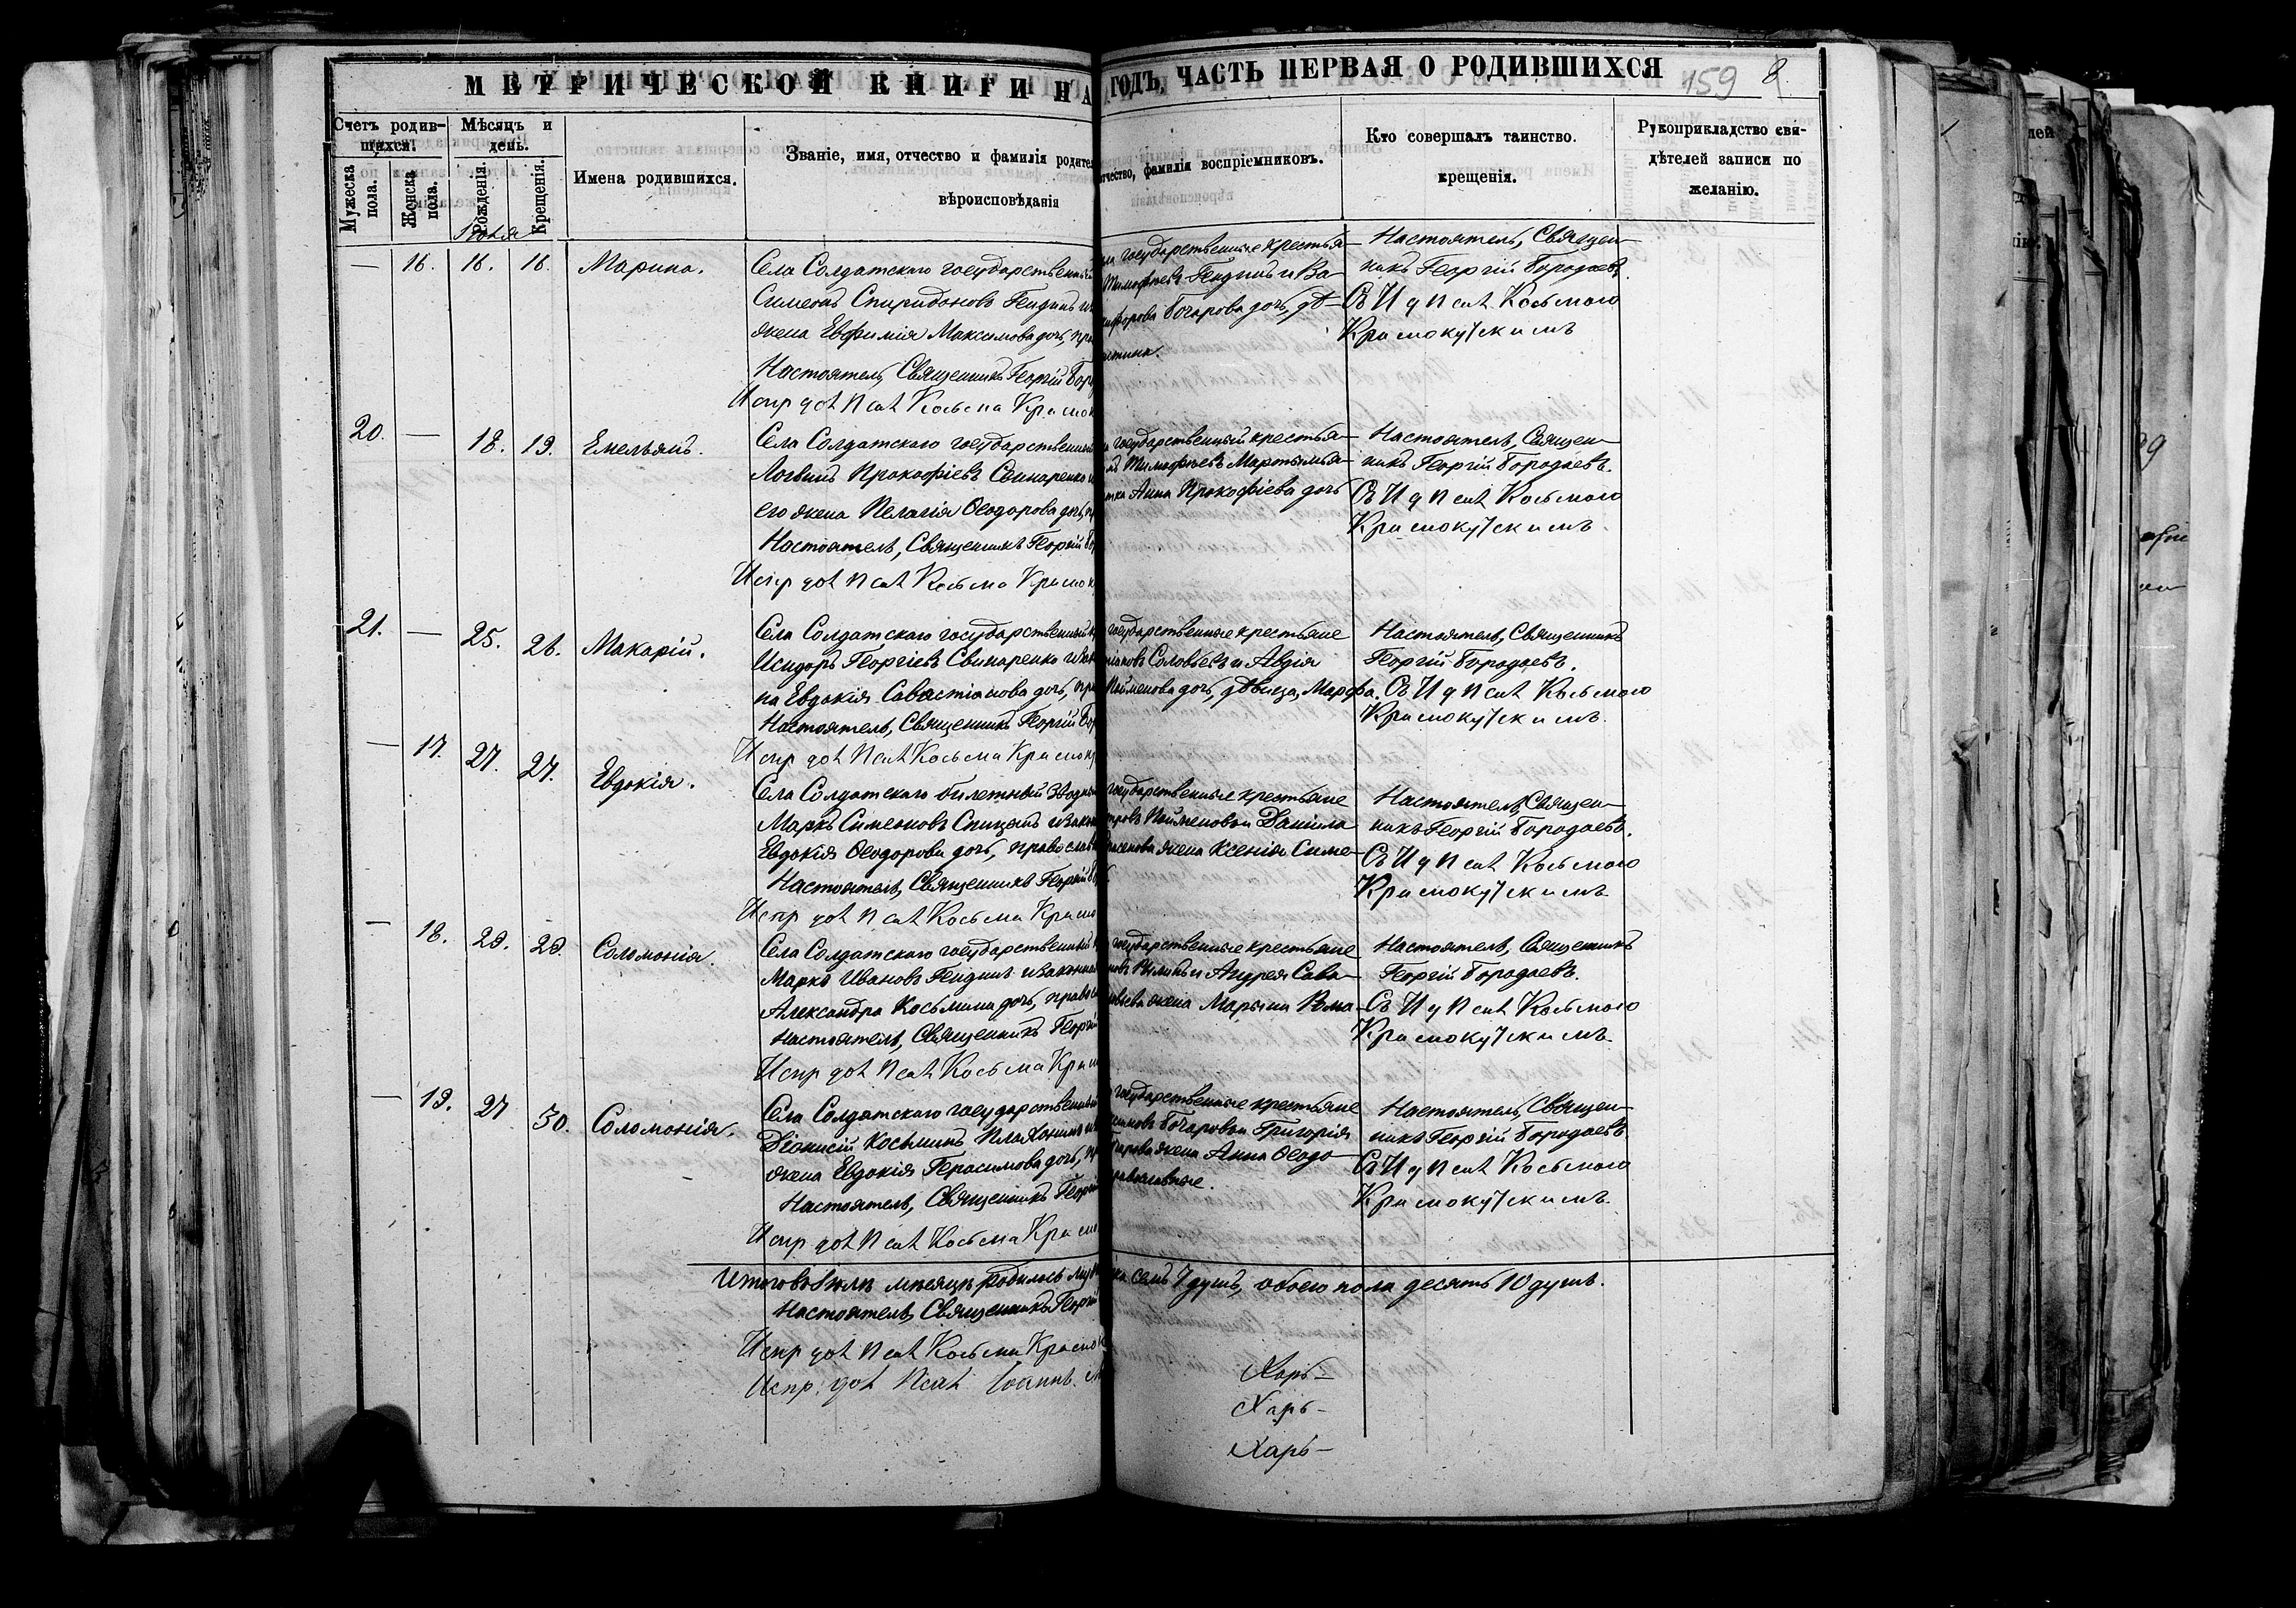 МЕТРИЧЕСКОЙ КНИГИ НА
ГОДЪ, ЧАСТЬ ПЕРВАЯ О РОДИВШИХСЯ
159
8.
Счетъ родив-
шихся.
Мужеска пола.
Женска пола.
Мѣсяцъ и
день.
Рожденія.
Крещенія.
Имена родившихся.
Званіе, имя, отчество и фамилія родител
вѣроисповѣданія
отчество, фамилія воспріемниковъ.
Кто совершалъ таинство.
крещенія.
Рукоприкладство сви-
дѣтелей записи по
желанію.
Іюля
— 16. 16. 16. Марина.
Села Солдатскаго государственный
Симеонъ Спиридоновъ Гендинъ и
жена Евфимія Максимова дочь, пра
Настоятель, Священникъ Георгій Бор
Испр дол Псал Косьма Красно
государственные крестья-
Тимофѣевъ Гендинъ и Ва-
Бочарова дочь, дѣ-
Настоятель, Священ-
никъ Георгій Бородаевъ.
Съ И д Псал Косьмою
Краснокутскимъ
20. — 18. 19. Емельянъ.
Села Солдатскаго государственный
Логвинъ Прокофіевъ Свинаренко и
его жена Пелагія Ѳеодорова дочь, п
Настоятель, Священникъ Георгій Бо
Испр дол Псал Косьма Краснок
государственный крестья-
Тимофѣевъ Мартынья-
Анна Прокофіева дочь
Настоятель, Священ-
никъ Георгій Бородаевъ.
Съ И д Псал Косьмою
Краснокутскимъ.
21. — 25. 26. Макарій.
Села Солдатскаго государственный к
Исидоръ Георгіевъ Свинаренко и зак
на Евдокія Савастіанова дочь, пра
Настоятель, Священникъ Георгій Бор
Испр дол Псал Косьма Красноку
государственные крестьяне
Соловьевъ и Авдія
Пойменова дочь, дѣвица, Марфа.
Настоятель, Священникъ
Георгій Бородаевъ.
Съ И д Псал Косьмою
Краснокутскимъ.
— 17. 27. 27. Евдокія.
Села Солдатскаго билетный
Маркъ Симеоновъ Спицынъ и закон
Евдокія Ѳеодорова дочь, православ
Настоятель, Священникъ Георгій Бор
Испр дол Псал Косьма Красно
государственные крестьяне
Пойменовъ и Даніила
жена Ксенія Симе-
Настоятель, Священ-
никъ Георгій Бородаевъ.
Съ И д Псал Косьмою
Краснокутскимъ.
— 18. 29. 29. Соломонія.
Села Солдатскаго государственный к
Марко Ивановъ Гендинъ и законная
Александра Косьмина дочь, правосл
Настоятель, Священникъ Георгій
Испр дол Псал Косьма Красн
государственные крестьяне
и Андрея Сава-
жена Марина Рома-
Настоятель, Священникъ
Георгій Бородаевъ.
Съ И д Псал Косьмою
Краснокутскимъ.
— 19. 27 30. Соломонія.
Села Солдатскаго государственный
Діонисій Косьминъ Плахотинъ и
жена Евдокія Герасимова дочь, пр
Настоятель, Священникъ Георгій
Испр дол Псал Косьма Красно
государственные крестьяне
Бочаровъ и Григорія
жена Анна Ѳеодо-
православные.
Настоятель, Священ-
никъ Георгій Бородаевъ.
Съ И д Псал Косьмою
Краснокутскимъ.
Итого въ Іюлѣ мѣсяцѣ родилось муж
ска семь 7 душъ, обоего пола десять 10 душъ.
Настоятель, Священникъ Георгій
Испр дол Псал Косьма Красно
Испр. дол Псал Іоаннъ
Харь-
Харь-
Харь-